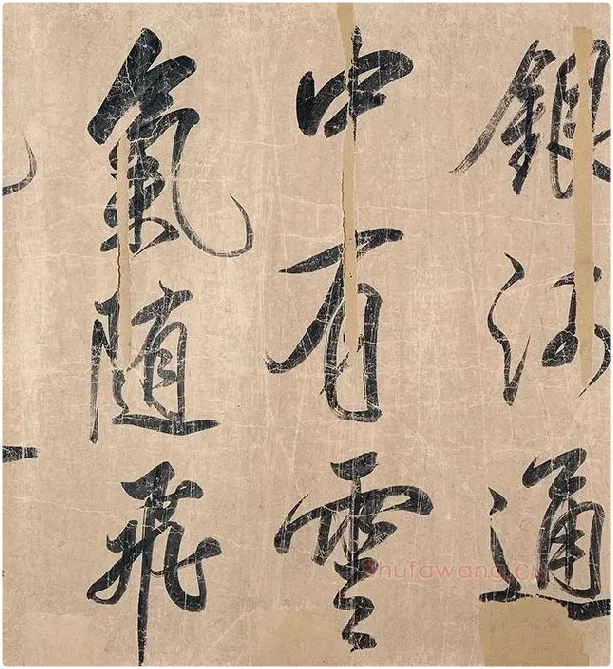 銀河通
中有雲
氣随飛
Shufawang.cn